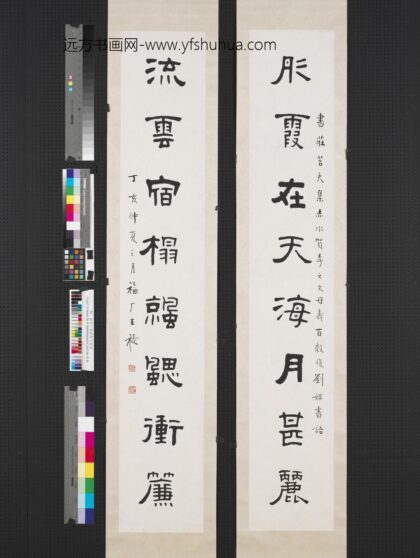 远方书画网-www.yfshuhua.com
彤霞在天海月甚麗
書莊 集赤水 季之文母壽百 劉姬書語
流雲宿榻 衝簾
丁亥仲夏之月福厂王禔